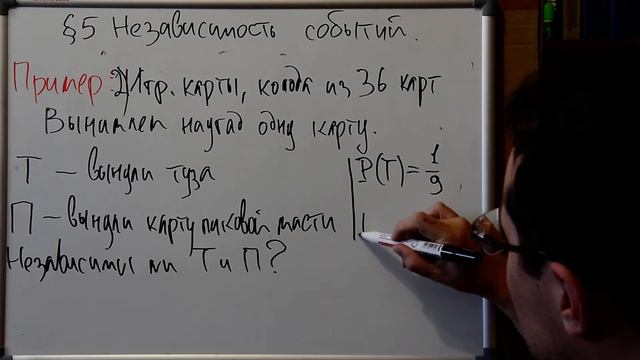 §5 Независимость событий.
Пример: Игр. карты, колода из 36 карт
Вынимает наугад одну карту.
Т – вынули туза
P(T) = 1/9
П – вынули карту пиковой масти
Независимы ли Т и П?